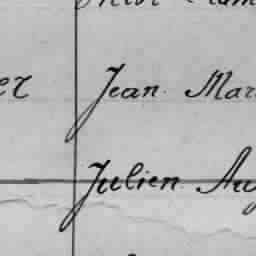 er Jean Mar
Julien Au